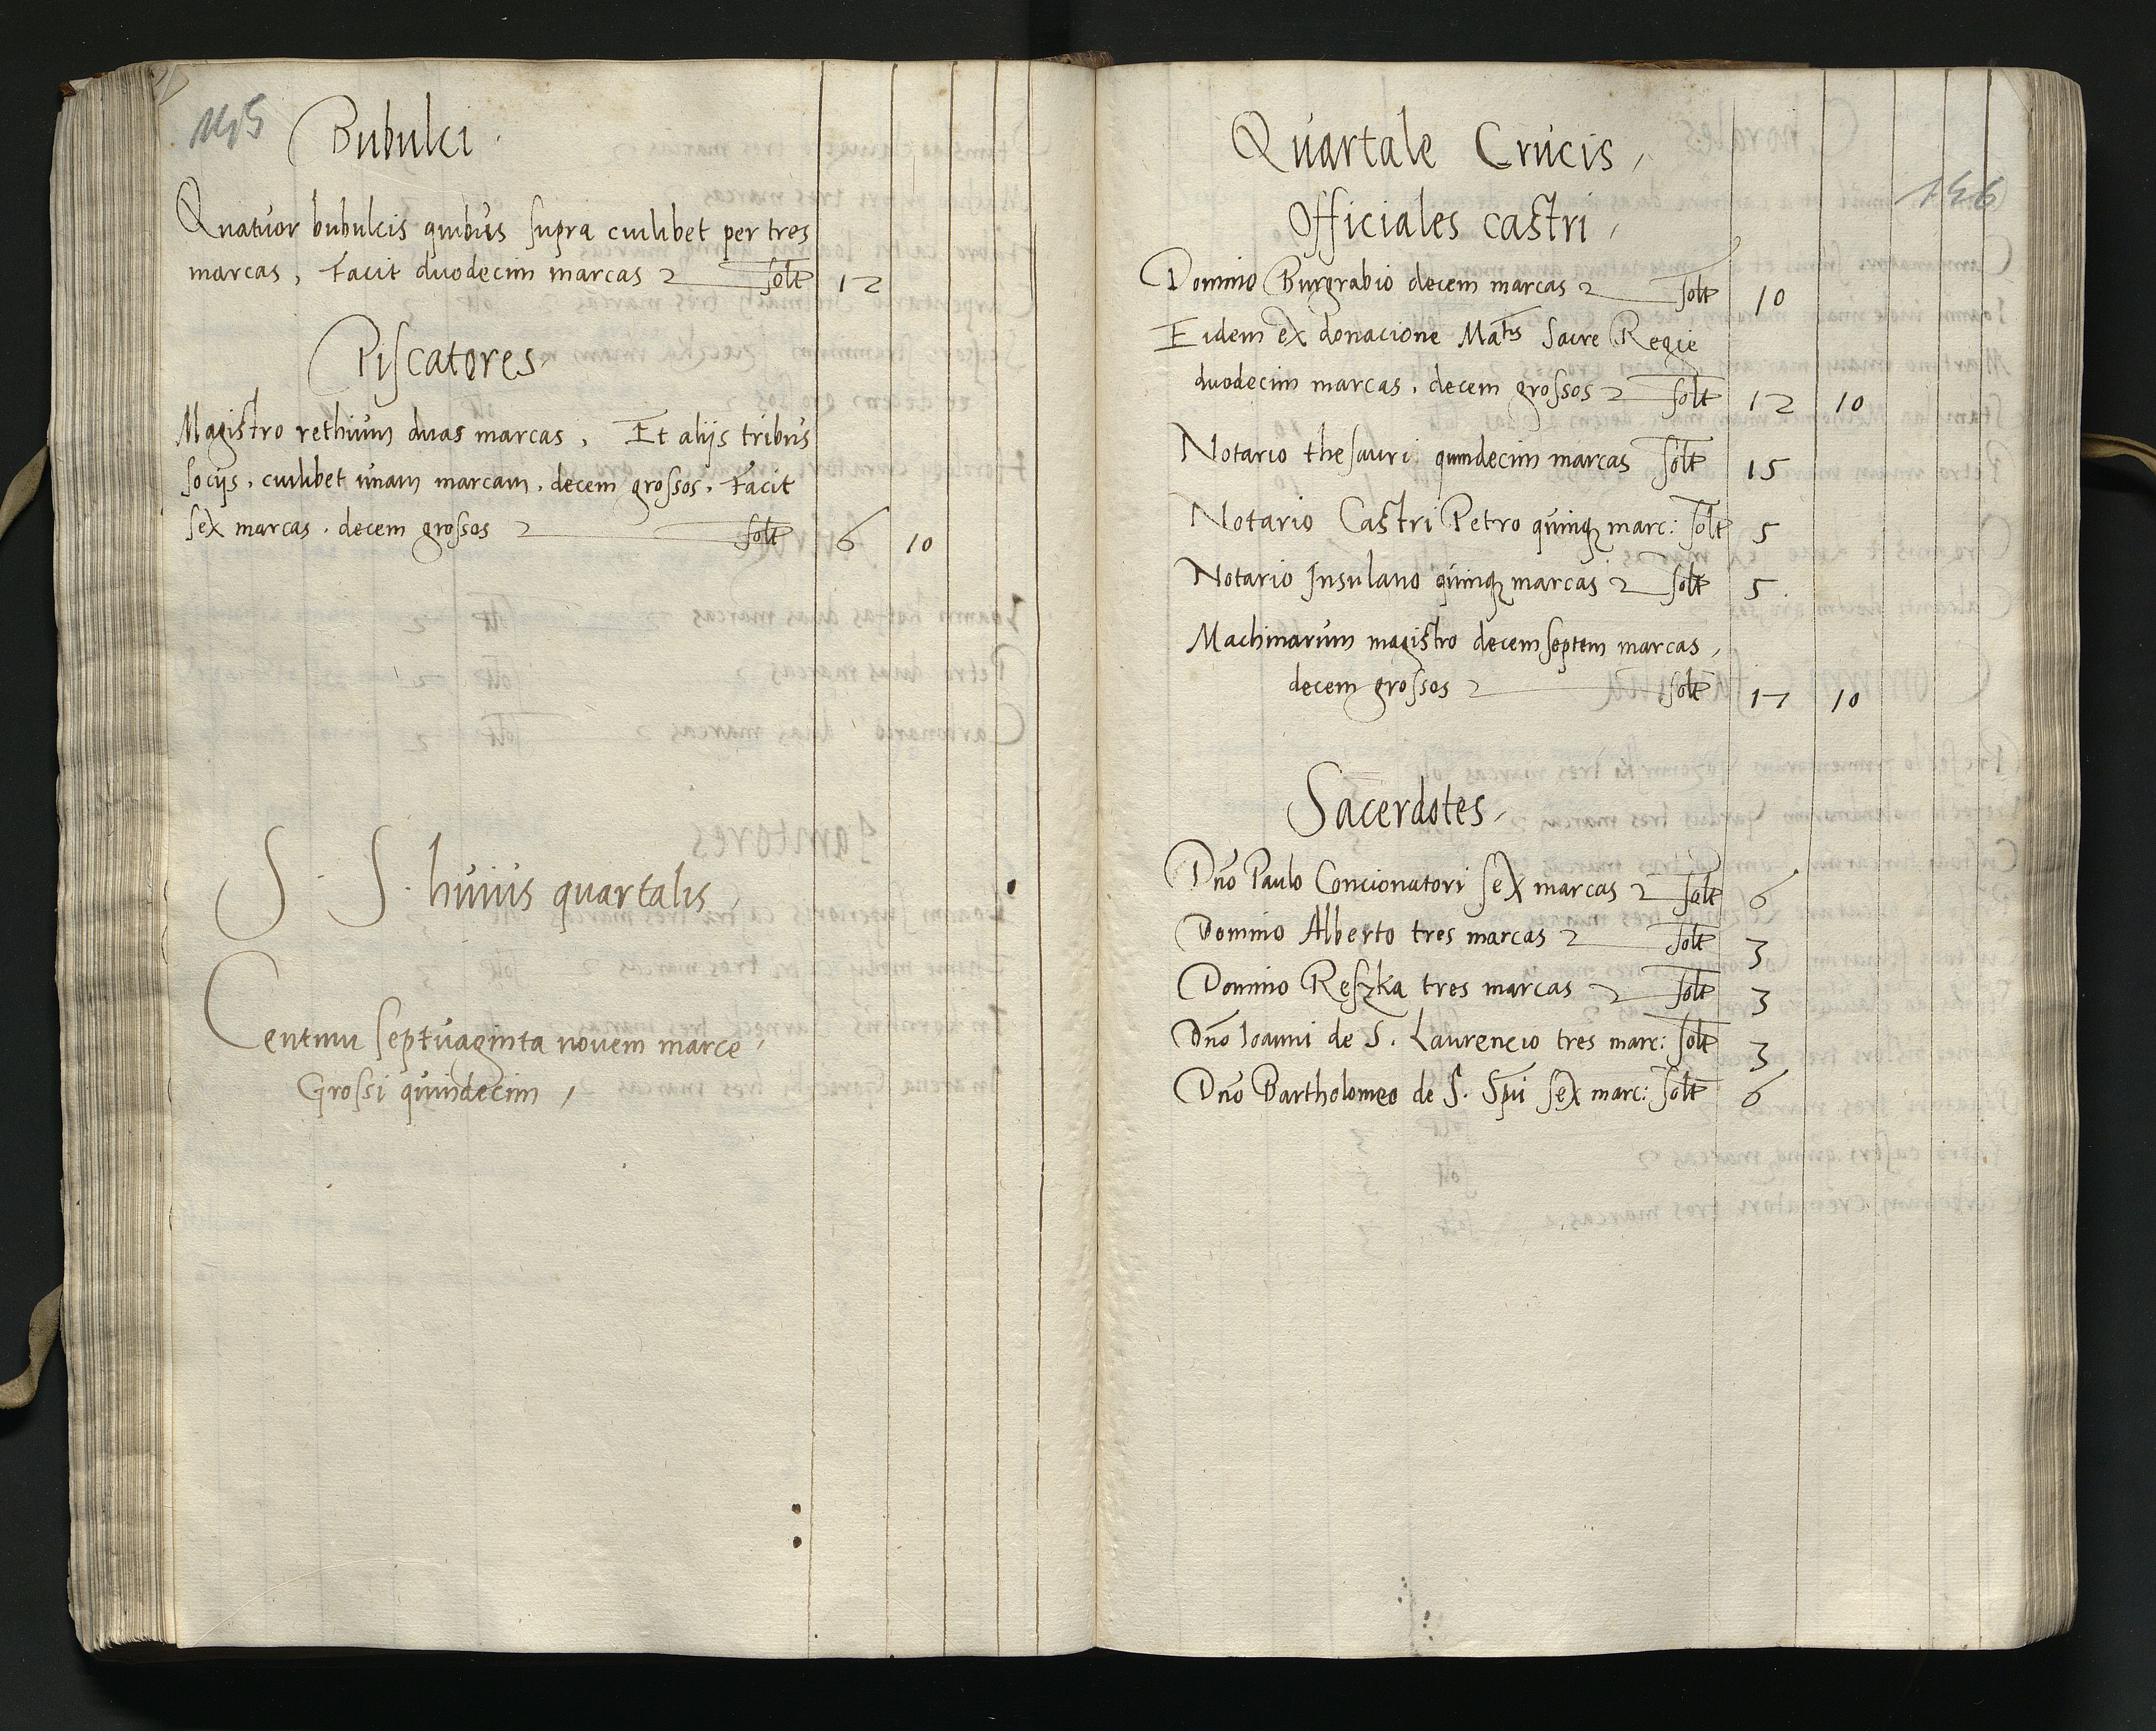 145
Bubulci.
Quatuor bubulcis quibus supra cuilibet per tres
marcas, facit duodecim marcas solt 12
Piscatores
Magistro rethium duas marcas, Et alijs tribus
socijs, cuilibet unam marcam, decem grossos, facit
sex marcas, decem grossos solt 6 10
S. S. huius quartalis,
Centum septuaginta novem marce,
Grossi quindecim,
Quartale Crucis,
146
Officiales castri,
Domino Burgrabio decem marcas solt 10
Eidem ex donacione Matis Sacre Regie
duodecim marcas, decem grossos solt 12 10
Notario thesauri quindecim marcas solt 15
Notario Castri Petro quinqz marc: solt 5
Notario Insulano quinqz marcas solt 5
Machinarum magistro decem septem marcas,
decem grossos solt 17 10
Sacerdotes,
Dno Paulo Concionatori sex marcas solt 6
Domino Alberto tres marcas solt 3
Domino Reszka tres marcas solt 3
Dno Ioanni de S. Laurencio tres marc: solt 3
Dno Bartholomeo de S. Spu sex marc: solt 6